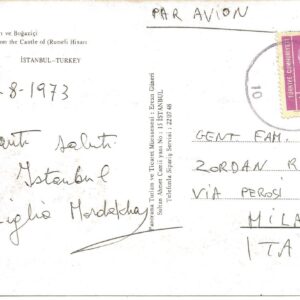 PAR AVION
ı ve Boğaziçi
om the Castle of (Rumeli Hisarı
İSTANBUL-TURKEY
-8-1973
saluti
Istanbul
Panorama Turizm ve Ticaret Müessesesi : Ercan Güneri
Sultan Ahmet Camii yanı No : 15 İSTANBUL
Telefonla Sipariş Servisi : 22 03 48
TÜRKİYE CUMHURİYETİ
10
GENT FAM.
ZORDAN R
VIA PEROSI
MILA
ITA